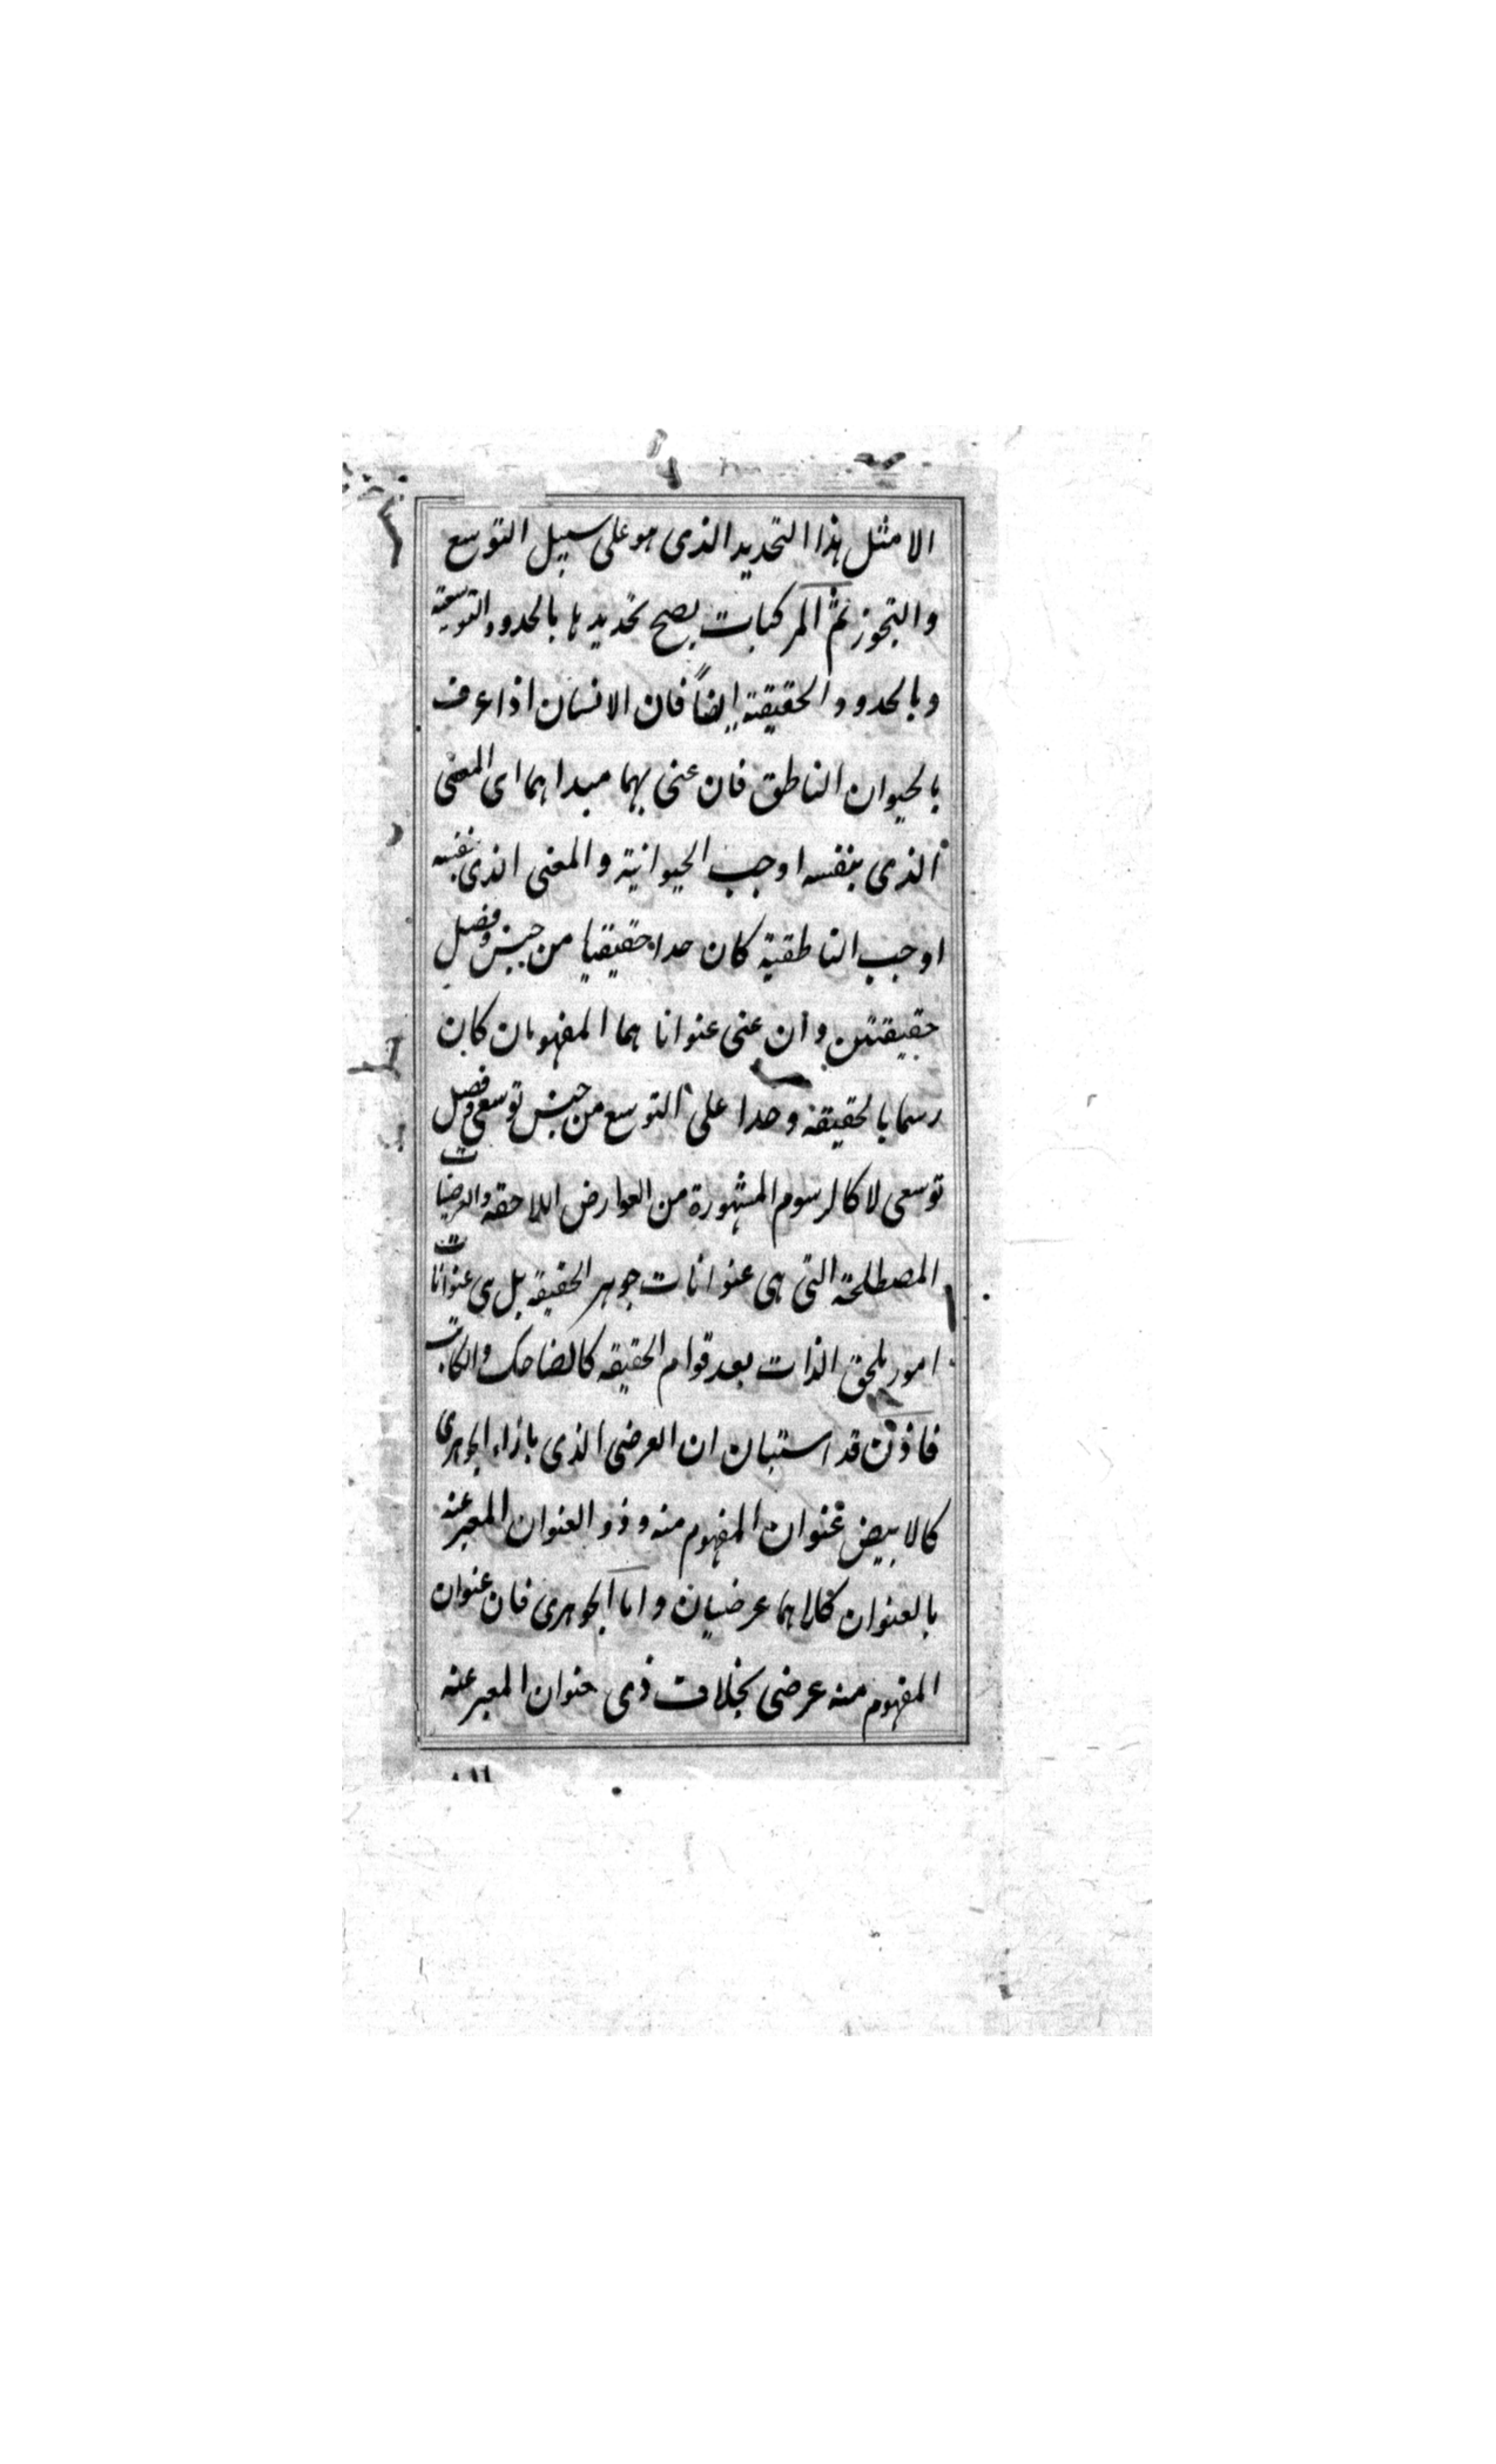 الا مثل هذا التحديد الذى هو على سبيل التوسع
والتجوز ثم المركبات يصح تحديدها بالحدود التوسعية
وبالحدود الحقيقية ايضاً فان الانسان اذا عرف
بالحيوان الناطق فان عنى بهما مبداهما اى المعنى
الذى بنفسه اوجب الحيوانية والمعنى الذى بنفسه
اوجب الناطقية كان حدا حقيقيا من جنس وفصل
حقيقتين وان عنى عنواناهما المفهومان كان
رسما بالحقيقة وحدا على التوسع من جنس توسعى وفصل
توسعى لا كالرسوم المشهورة من العوارض اللاحقه والعرضيات
المصطلحة التى هى عنوانات جوهر الحقيقة بل هى عنوانات
امور يلحق الذات بعد قوام الحقيقه كالضاحك والكاتب
فاذن قد استبان ان العرضى الذى بازاء الجوهرى
كالابيض عنوان المفهوم منه وذو العنوان المعبر عنه
بالعنوان كلاهما عرضيان واما الجوهرى فان عنوان
المفهوم منه عرضى بخلاف ذى عنوان المعبر عنه